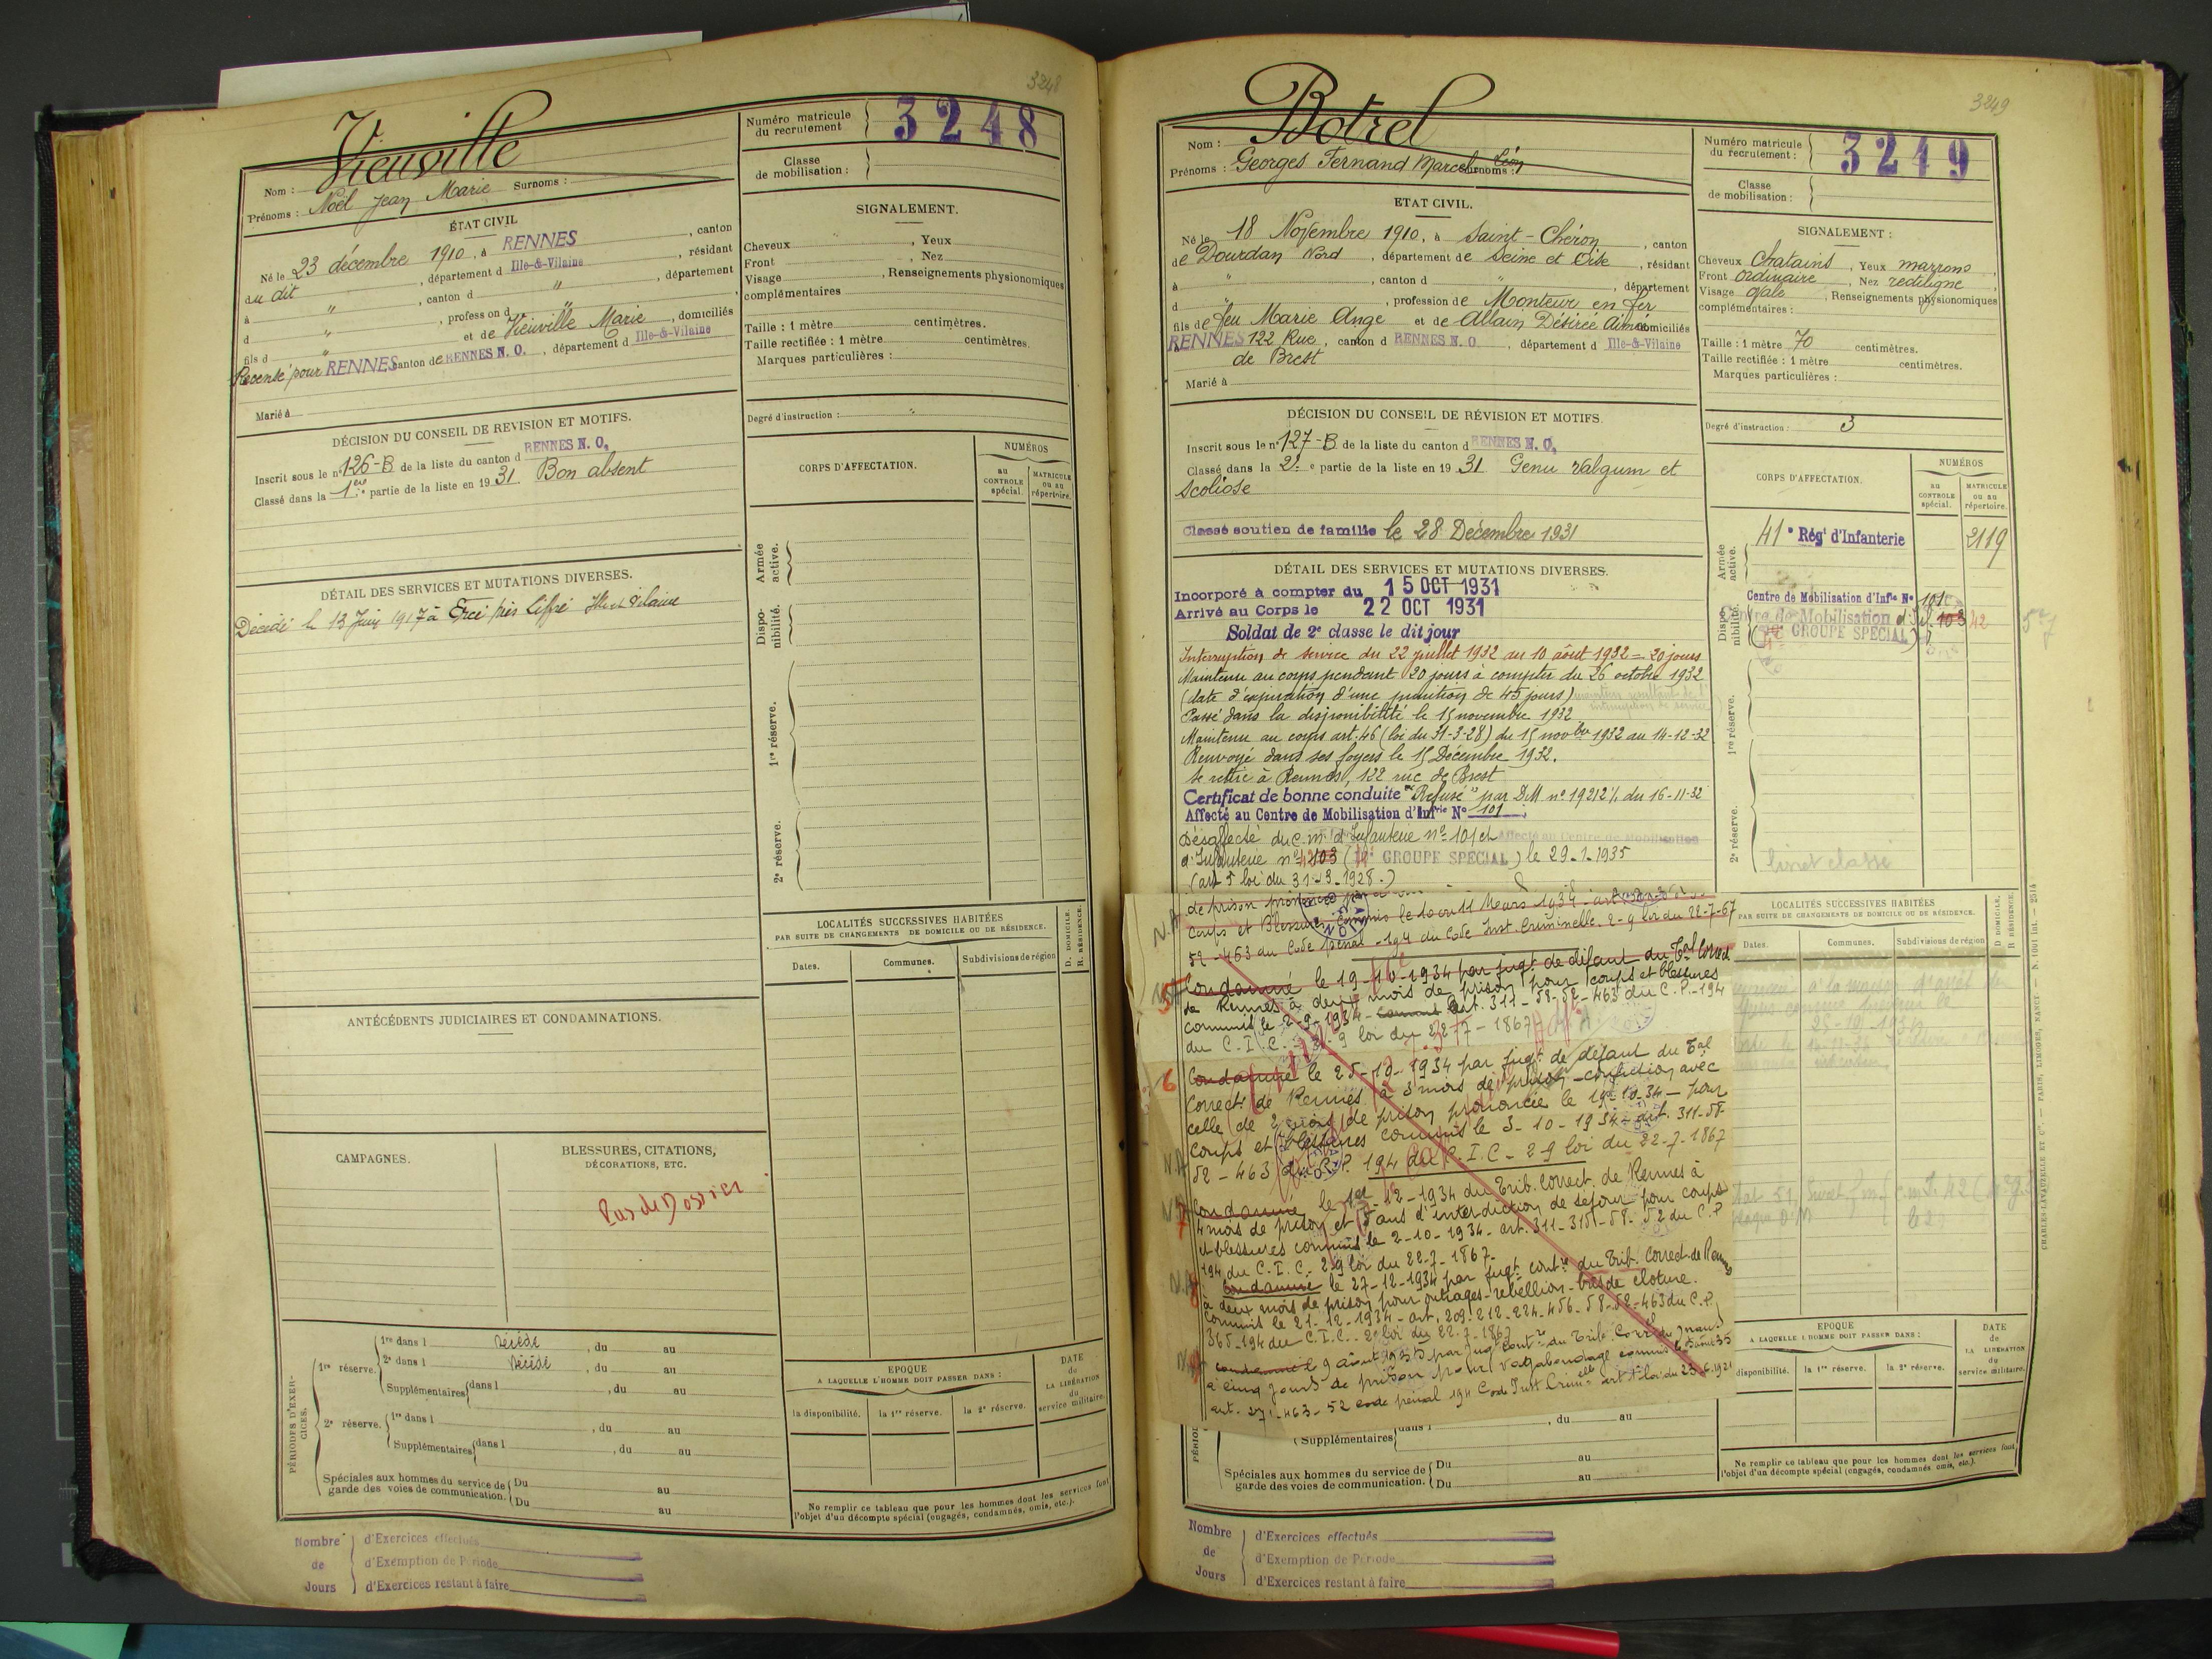 3248
Vieuville
Nom :
Prénoms : Noël Jean Marie Surnoms :
Numéro matricule du recrutement 3248
Classe de mobilisation :
ÉTAT CIVIL
Né le 23 décembre 1910, à RENNES, canton
du dit, département d Ille-&-Vilaine, résidant
à " , canton d " , département
d " , profession d
fils d " et de Vieuville Marie, domiciliés
Recensé pour RENNES canton de RENNES N. O., département d Ille-&-Vilaine
Marié à
SIGNALEMENT.
Cheveux , Yeux
Front , Nez
Visage , Renseignements physionomiques
complémentaires
Taille : 1 mètre centimètres.
Taille rectifiée : 1 mètre centimètres.
Marques particulières :
Degré d'instruction : "
DÉCISION DU CONSEIL DE REVISION ET MOTIFS.
Inscrit sous le n° 126-B de la liste du canton d RENNES N. O.
Classé dans la 1ère partie de la liste en 19 31 Bon absent
CORPS D'AFFECTATION.
NUMÉROS
au CONTROLE spécial.
MATRICULE ou au répertoire.
DÉTAIL DES SERVICES ET MUTATIONS DIVERSES.
Décédé le 13 Juin 1917 à Ercé près Liffré Ille et Vilaine
Armée active.
Disponibilité.
1re réserve.
2e réserve.
LOCALITÉS SUCCESSIVES HABITÉES
PAR SUITE DE CHANGEMENTS DE DOMICILE OU DE RÉSIDENCE.
D. DOMICILE.
R. RÉSIDENCE.
Dates.
Communes.
Subdivisions de région
ANTÉCÉDENTS JUDICIAIRES ET CONDAMNATIONS.
CAMPAGNES.
BLESSURES, CITATIONS,
DÉCORATIONS, ETC.
Pas de Dossier
PÉRIODES D'EXERCICES.
1re réserve. 1re dans l Décédé , du au
2e dans l Décédé , du au
Supplémentaires dans l , du au
2e réserve. 1re dans l , du au
Supplémentaires dans l , du au
Spéciales aux hommes du service de garde des voies de communication. Du au
Du au
EPOQUE
A LAQUELLE L'HOMME DOIT PASSER DANS :
DATE de LA LIBÉRATION du service militaire.
la disponibilité.
la 1re réserve.
la 2e réserve.
Ne remplir ce tableau que pour les hommes dont les services font
l'objet d'un décompte spécial (engagés, condamnés, omis, etc.).
Nombre de Jours
d'Exercices effectués
d'Exemption de Période
d'Exercices restant à faire
3249
Botrel
Nom :
Prénoms : Georges Fernand Marcel Léon Surnoms :
Numéro matricule du recrutement : 3249
Classe de mobilisation :
ETAT CIVIL.
Né le 18 Novembre 1910, à Saint-Chéron, canton
de Dourdan Nord, département de Seine et Oise, résidant
à " , canton d " , département
d " , profession de Monteur en fer
fils de feu Marie Ange et de Allain Désirée Aimée domiciliés
à RENNES 122 Rue, canton d RENNES N. O, département d Ille-&-Vilaine
de Brest
Marié à
SIGNALEMENT :
Cheveux Chatains, Yeux marrons
Front ordinaire, Nez rectiligne
Visage ovale, Renseignements physionomiques
complémentaires :
Taille : 1 mètre 70 centimètres.
Taille rectifiée : 1 mètre centimètres.
Marques particulières :
Degré d'instruction : 3
DÉCISION DU CONSEIL DE RÉVISION ET MOTIFS.
Inscrit sous le n° 127-B de la liste du canton d RENNES N. O.
Classé dans la 2e partie de la liste en 19 31 Genu valgum et
scoliose
Classé soutien de famille le 28 Décembre 1931
CORPS D'AFFECTATION.
NUMÉROS
au CONTROLE spécial.
MATRICULE ou au répertoire.
Armée active.
41e Régt d'Infanterie 2119
Disponibilité.
Centre de Mobilisation d'Infie N° 101
Centre de Mobilisation d'Inf. 103 42
GROUPE SPECIAL
1re réserve.
2e réserve.
livret classé
DÉTAIL DES SERVICES ET MUTATIONS DIVERSES.
Incorporé à compter du 15 OCT 1931
Arrivé au Corps le 22 OCT 1931
Soldat de 2e classe le dit jour
Interruption de service du 22 juillet 1932 au 10 août 1932 = 20 jours
Maintenu au corps pendant 20 jours à compter du 26 octobre 1932
(date d'expiration d'une punition de 45 jours)
Passé dans la disponibilité le 15 novembre 1932
Maintenu au corps art. 46 (loi du 31-3-28) du 15 novbre 1932 au 14-12-32
Renvoyé dans ses foyers le 15 Décembre 1932.
se retire à Rennes, 122 rue de Brest
Certificat de bonne conduite "Refusé" par DM n° 19212 1/ du 16-11-32
Affecté au Centre de Mobilisation d'Infrie N° 101
Désaffecté du C.M. d'Infanterie n° 101 et Affecté au Centre de Mobilisation
d'Infanterie n° 103 (GROUPE SPECIAL) le 29-1-1935
(art 5 loi du 31-3-1928-)
de prison
coups et Blessures commis le 10 ou 11 Mars 1934 - art
52-463 du Code pénal - 194 du Code Inst. Criminelle. 2-9 loi du 22-7-67
5 Condamné le 19-10-1934 par jugt de défaut du Tal Correct
de Rennes à deux mois de prison pour coups et blessures
commis le 2-9-1934 - art. 311-58-52-463 du C.P.-194
du C.I.C. - 2-9 loi du 22-7-1867
6 Condamné le 25-10-1934 par jugt de défaut du Tal
Correct. de Rennes à 3 mois de prison - confusion avec
celle de 2 mois de prison prononcée le 19-10-34 - pour
coups et blessures commis le 3-10-1934 - art. 311-58-
52-463 du C.P. 194 du C.I.C - 2-9 loi du 22-7-1867
7 Condamné le 1er-12-1934 du Trib. Correct. de Rennes à
4 mois de prison et 5 ans d'interdiction de séjour pour coups
et blessures commis le 2-10-1934. art. 311-315-58-52 du C.P.
194 du C.I.C. 2-9 loi du 22-7-1867-
8 Condamné le 27-12-1934 par jugt contre du Trib. Correct. de Rennes
à deux mois de prison pour outrages-rebellion-bris de cloture.
Commis le 21-12-1934 - art. 209-212-224-456-58-52-463 du C.P.
365-194 du C.I.C. - 2-9 loi du 22-7-1867
Condamné le 9 août 1935 par jugt contre du Trib. Corrl
à cinq jours de prison pour vagabondage commis le août 35
art. 271-463-52 code pénal 194 Code Inst Crimelle
LOCALITÉS SUCCESSIVES HABITÉES
PAR SUITE DE CHANGEMENTS DE DOMICILE OU DE RÉSIDENCE.
D DOMICILE.
R RÉSIDENCE.
Dates.
Communes.
Subdivisions de région
EPOQUE
A LAQUELLE L'HOMME DOIT PASSER DANS :
DATE de LA LIBÉRATION du service militaire.
disponibilité.
la 1re réserve.
la 2e réserve.
Supplémentaires dans l , du au
Spéciales aux hommes du service de garde des voies de communication. Du au
Du au
Ne remplir ce tableau que pour les hommes dont les services font
l'objet d'un décompte spécial (engagés, condamnés omis, etc.).
CHARLES-LAVAUZELLE ET Cie. — PARIS, LIMOGES, NANCY.
Nombre de Jours
d'Exercices effectués
d'Exemption de Période
d'Exercices restant à faire